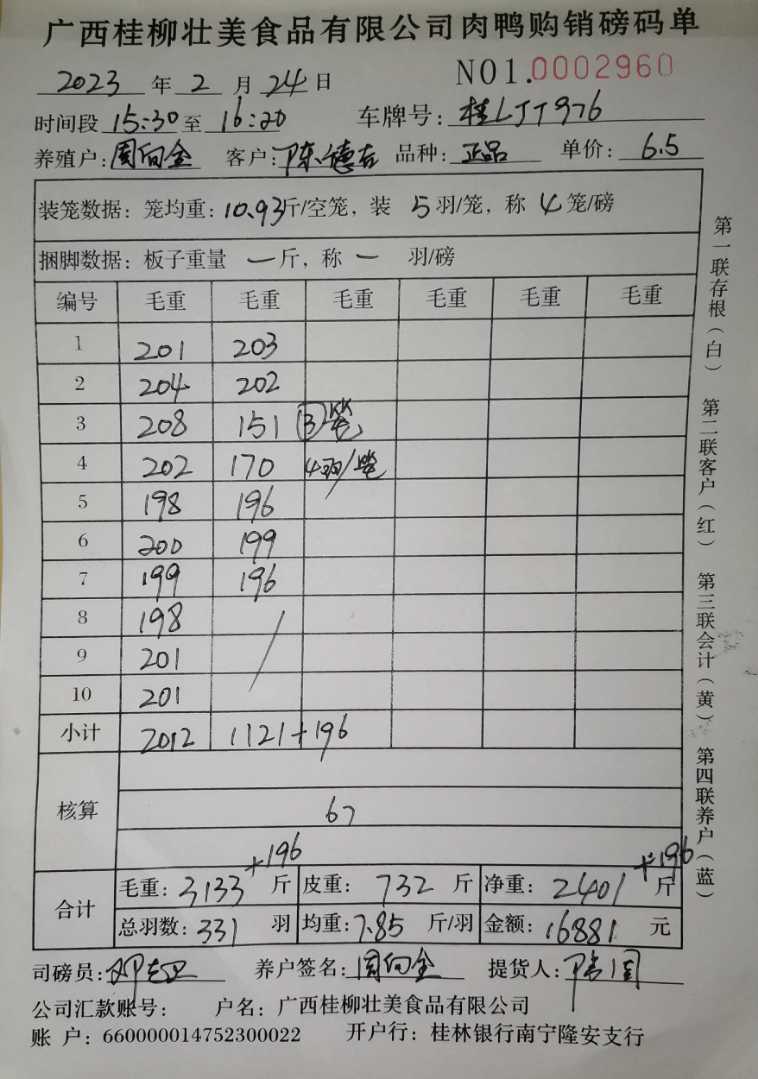 广西桂柳壮美食品有限公司肉鸭购销磅码单
2023 年 2 月 24 日 NO1.0002960
时间段 15:30 至 16:20 车牌号: 桂LJT976
养殖户: 周向全 客户: 陈德右 品种: 正品 单价: 6.5
装笼数据: 笼均重: 10.93斤/空笼, 装 5 羽/笼, 称 4 笼/磅
捆脚数据: 板子重量 一 斤, 称 一 羽/磅
编号 毛重 毛重 毛重 毛重 毛重 毛重
1 201 203
2 204 202
3 208 151 3笼
4 202 170 4羽/笼
5 198 196
6 200 199
7 199 196
8 198 /
9 201
10 201
小计 2012 1121+196
核算 67
+196 +196
合计 毛重: 3133 斤 皮重: 732 斤 净重: 2401 斤
总羽数: 331 羽 均重: 7.85 斤/羽 金额: 16881 元
司磅员: 养户签名: 周向全 提货人:
公司汇款账号: 户名: 广西桂柳壮美食品有限公司
账 户: 660000014752300022 开户行: 桂林银行南宁隆安支行
第一联存根(白) 第二联客户(红) 第三联会计(黄) 第四联养户(蓝)